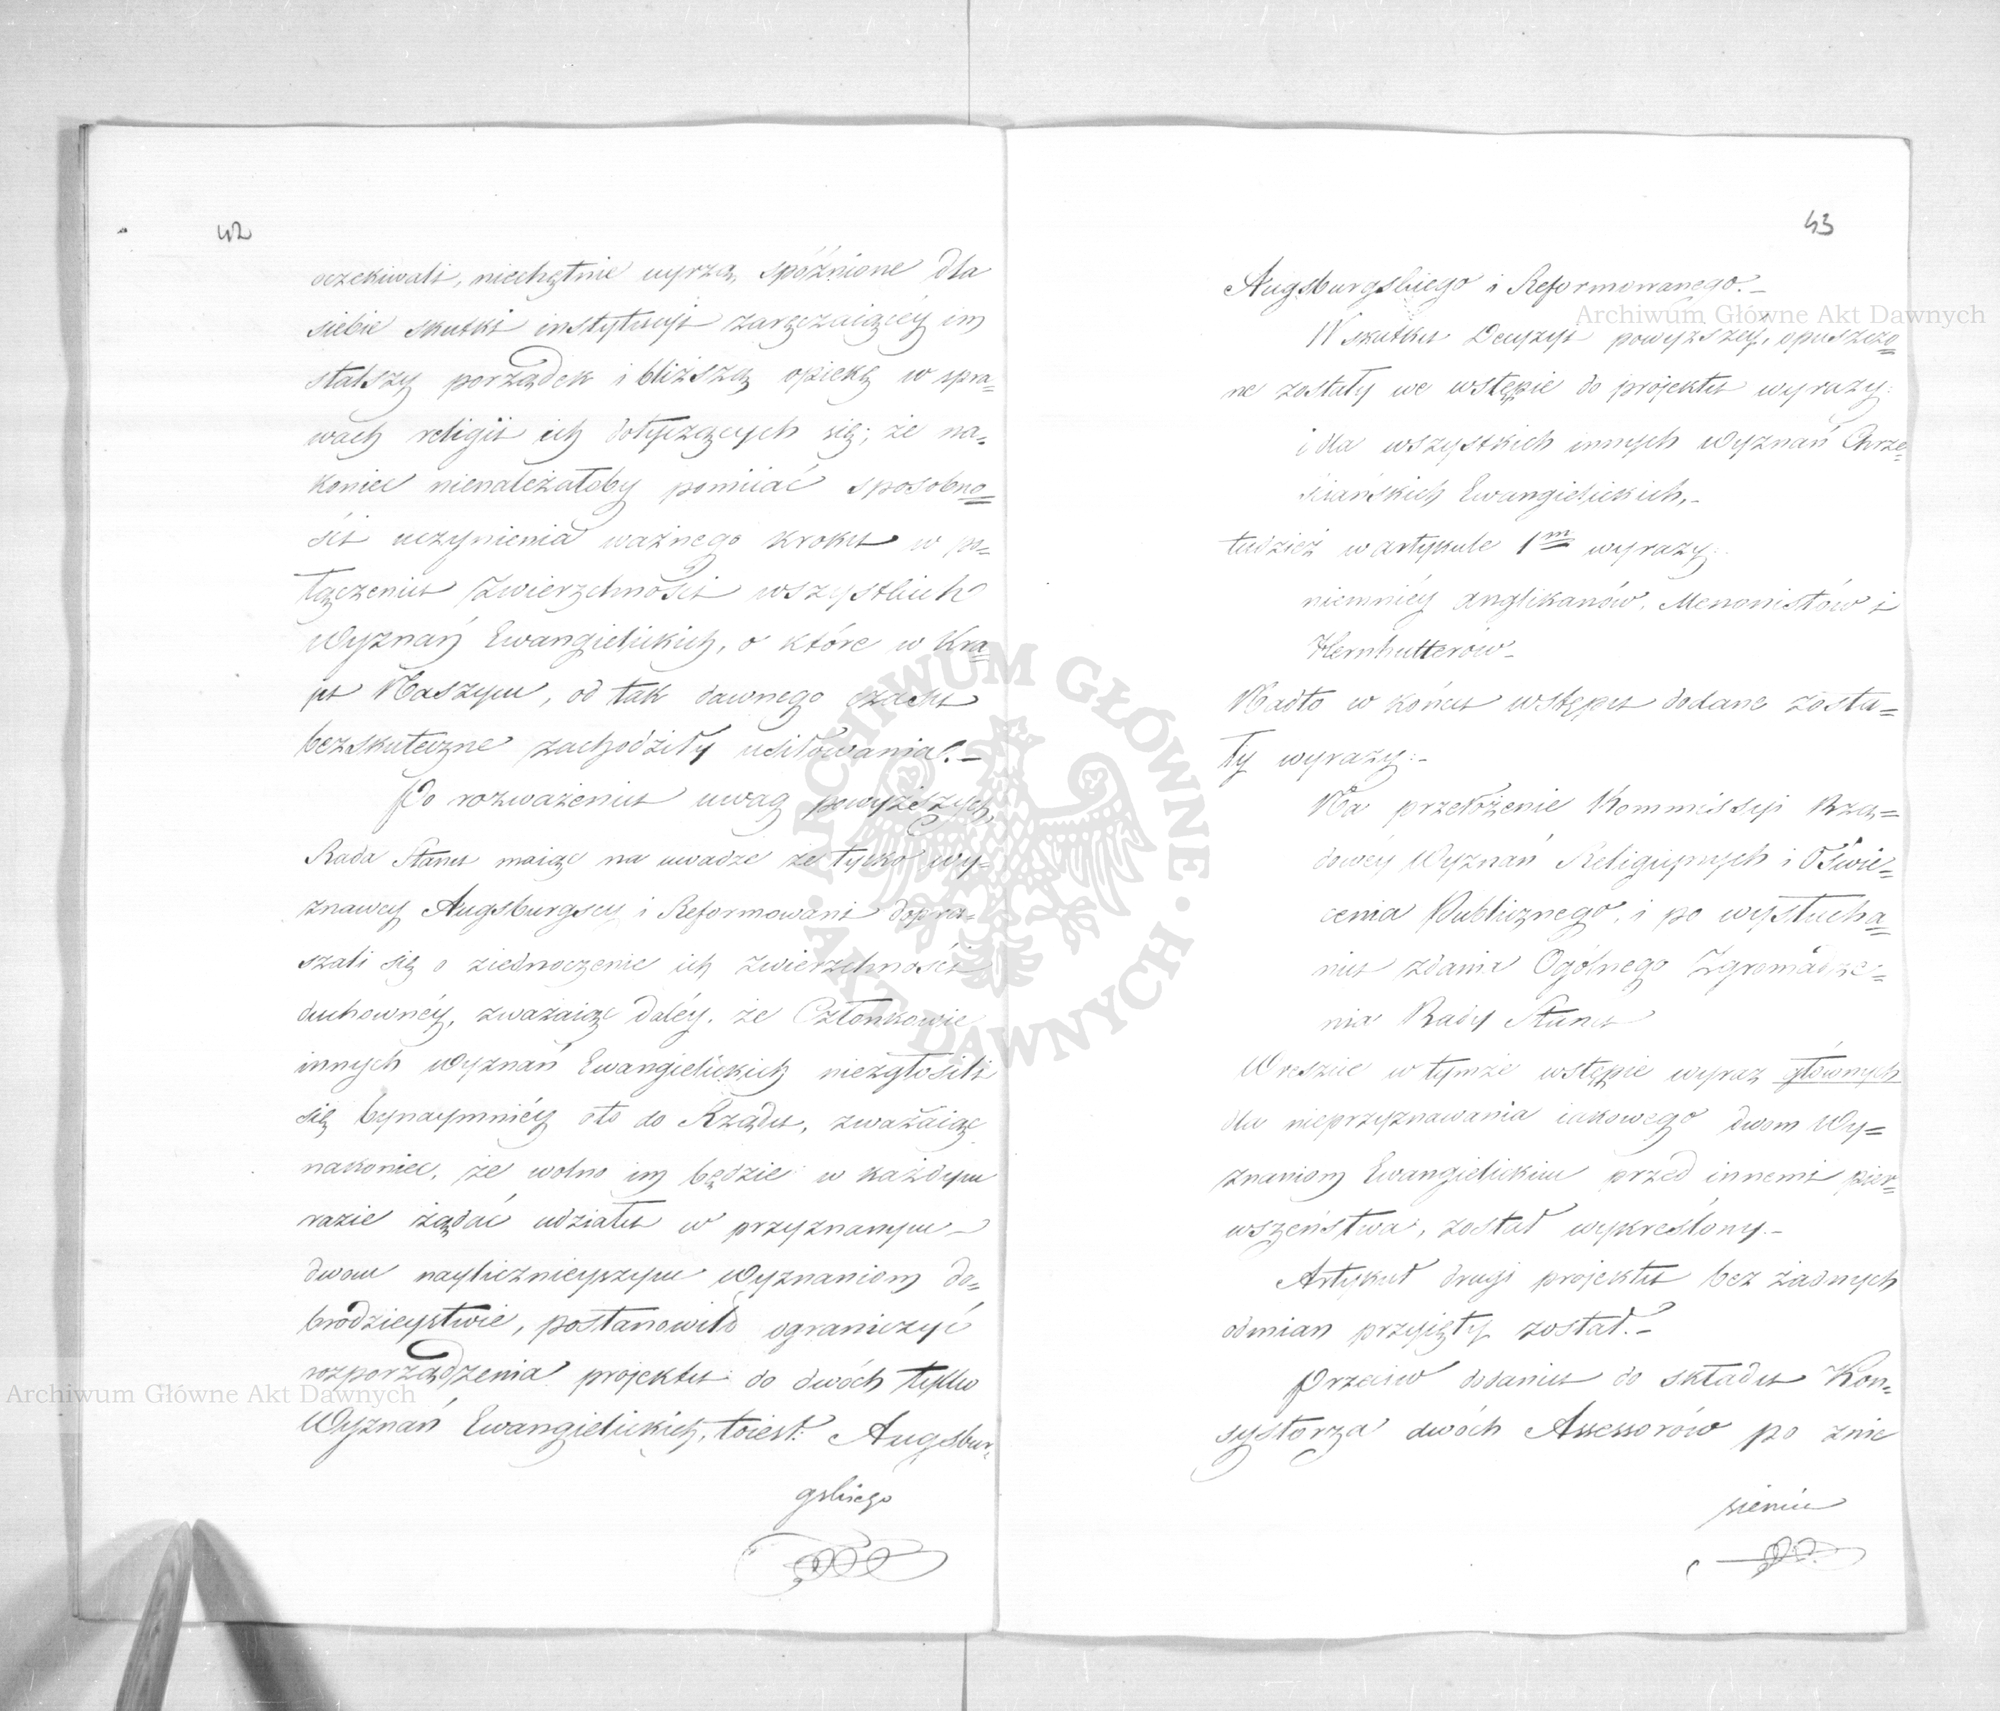 42
oczekiwali, niechętnie uyrzą, spóźnione dla
siebie skutki instytucyi zaręczaiącéy im
stalszy porządek i bliższą opiekę w spra-
wach religii ich dotyczących się; że na=
koniec nienależałoby pomiiać sposobno=
ści uczynienia ważnego kroku w po=
łączeniu Zwierzchności wszystkich
Wyznań Ewangielickich, o które w Kra=
iu Naszym, od tak dawnego czasu
bezskuteczne zachodziły usiłowania.-
Po rozważeniu uwag powyższych,
Rada Stanu maiąc na uwadze że tylko wy=
znawcy Augsburgscy i Reformowani dopra=
szali się o ziednoczenie ich Zwierzchności
duchownéy, zważaiąc daléy, że Członkowie
innych Wyznań Ewangielickich niezgłosili
się bynaymniéy oto do Rządu, zważaiąc
nakoniec, że wolno im będzie w każdym
razie żądać udziału w przyznanym
dwom nayliczniejszym Wyznaniom do=
brodzieystwie, postanowiła ograniczyć
rozporządzenia projektu do dwóch tylko
Wyznań Ewangielickich, toiest: Augsbur-
gskiego
43
Augsburgskiego i Reformowanego.-
W skutku Decyzyi powyższey, opuszczo=
ne zostały we wstępie do projektu wyrazy:
i dla wszystkich innych Wyznań Chrze=
ściańskich Ewangielickich,-
tudzież w artykule 1m wyrazy:
niemniéy anglikanów, Menonistów i
Hernhutterów-
Nadto w końcu wstępu dodane zosta=
ły wyrazy:-
Na przełożenie Kommissyi Rzą=
dowéy Wyznań Religiynych i Oświe=
cenia Publicznego, i po wysłucha=
niu zdania Ogólnego Zgromadze=
nia Rady Stanu
Wreszcie w tymże wstępie wyraz głównych
dla nieprzyznawania iakowego dwom Wy=
znaniom Ewangielickim przed innemi pier=
wszeństwa, został wykreślony.-
Artykuł drugi projektu bez żadnych
odmian przyięty został.-
Przeciw dodaniu do składu Kon=
systorza dwóch Assessorów po znie
sieniu
Archiwum Główne Akt Dawnych
Archiwum Główne Akt Dawnych
ARCHIWUM GŁÓWNE AKT DAWNYCH